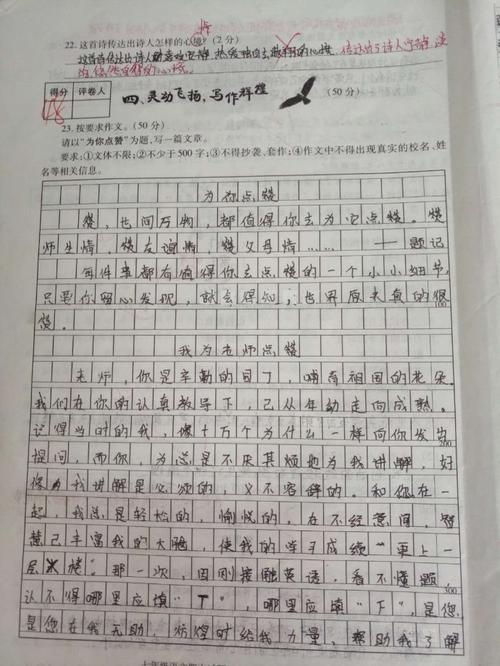 22. 这首诗传达出诗人怎样的心境?(2分)
得分 评卷人
48
四、灵动飞扬,写作辉煌 (50分)
23. 按要求作文。(50分)
请以“为你点赞”为题,写一篇文章。
要求:①文体不限;②不少于500字;③不得抄袭、套作;④作文中不得出现真实的校名、姓
名等相关信息。
为你点赞
赞,世间万物,都值得你去为它点赞。赞
师生情,赞友谊情,赞父母情…… ——题记
每件事都有值得你去点赞的一个小小细节,
只要你留心发现,就会得知,世界原来真的很
100
赞。
我为老师点赞
老师,你是辛勤的园丁,哺育祖国的花朵。
我们在你的认真教导下,已从年幼走向成熟。
记得当时的我,像十万个为什么一样向你发出
200
提问,而你,为总是不厌其烦地为我讲解,好
像为我讲解是必须的,义不容辞的。和你在一
起,我总是轻松的,愉悦的,在不经意间,智
慧已丰富我的大脑,使我的学子成绩“更上一
层楼。那一次,因刚接触英语,看不懂题,
300
认不得哪里应填“T”,哪里应填“F”,是您
是你在我无助,烦惶时给我力量,帮助我了解